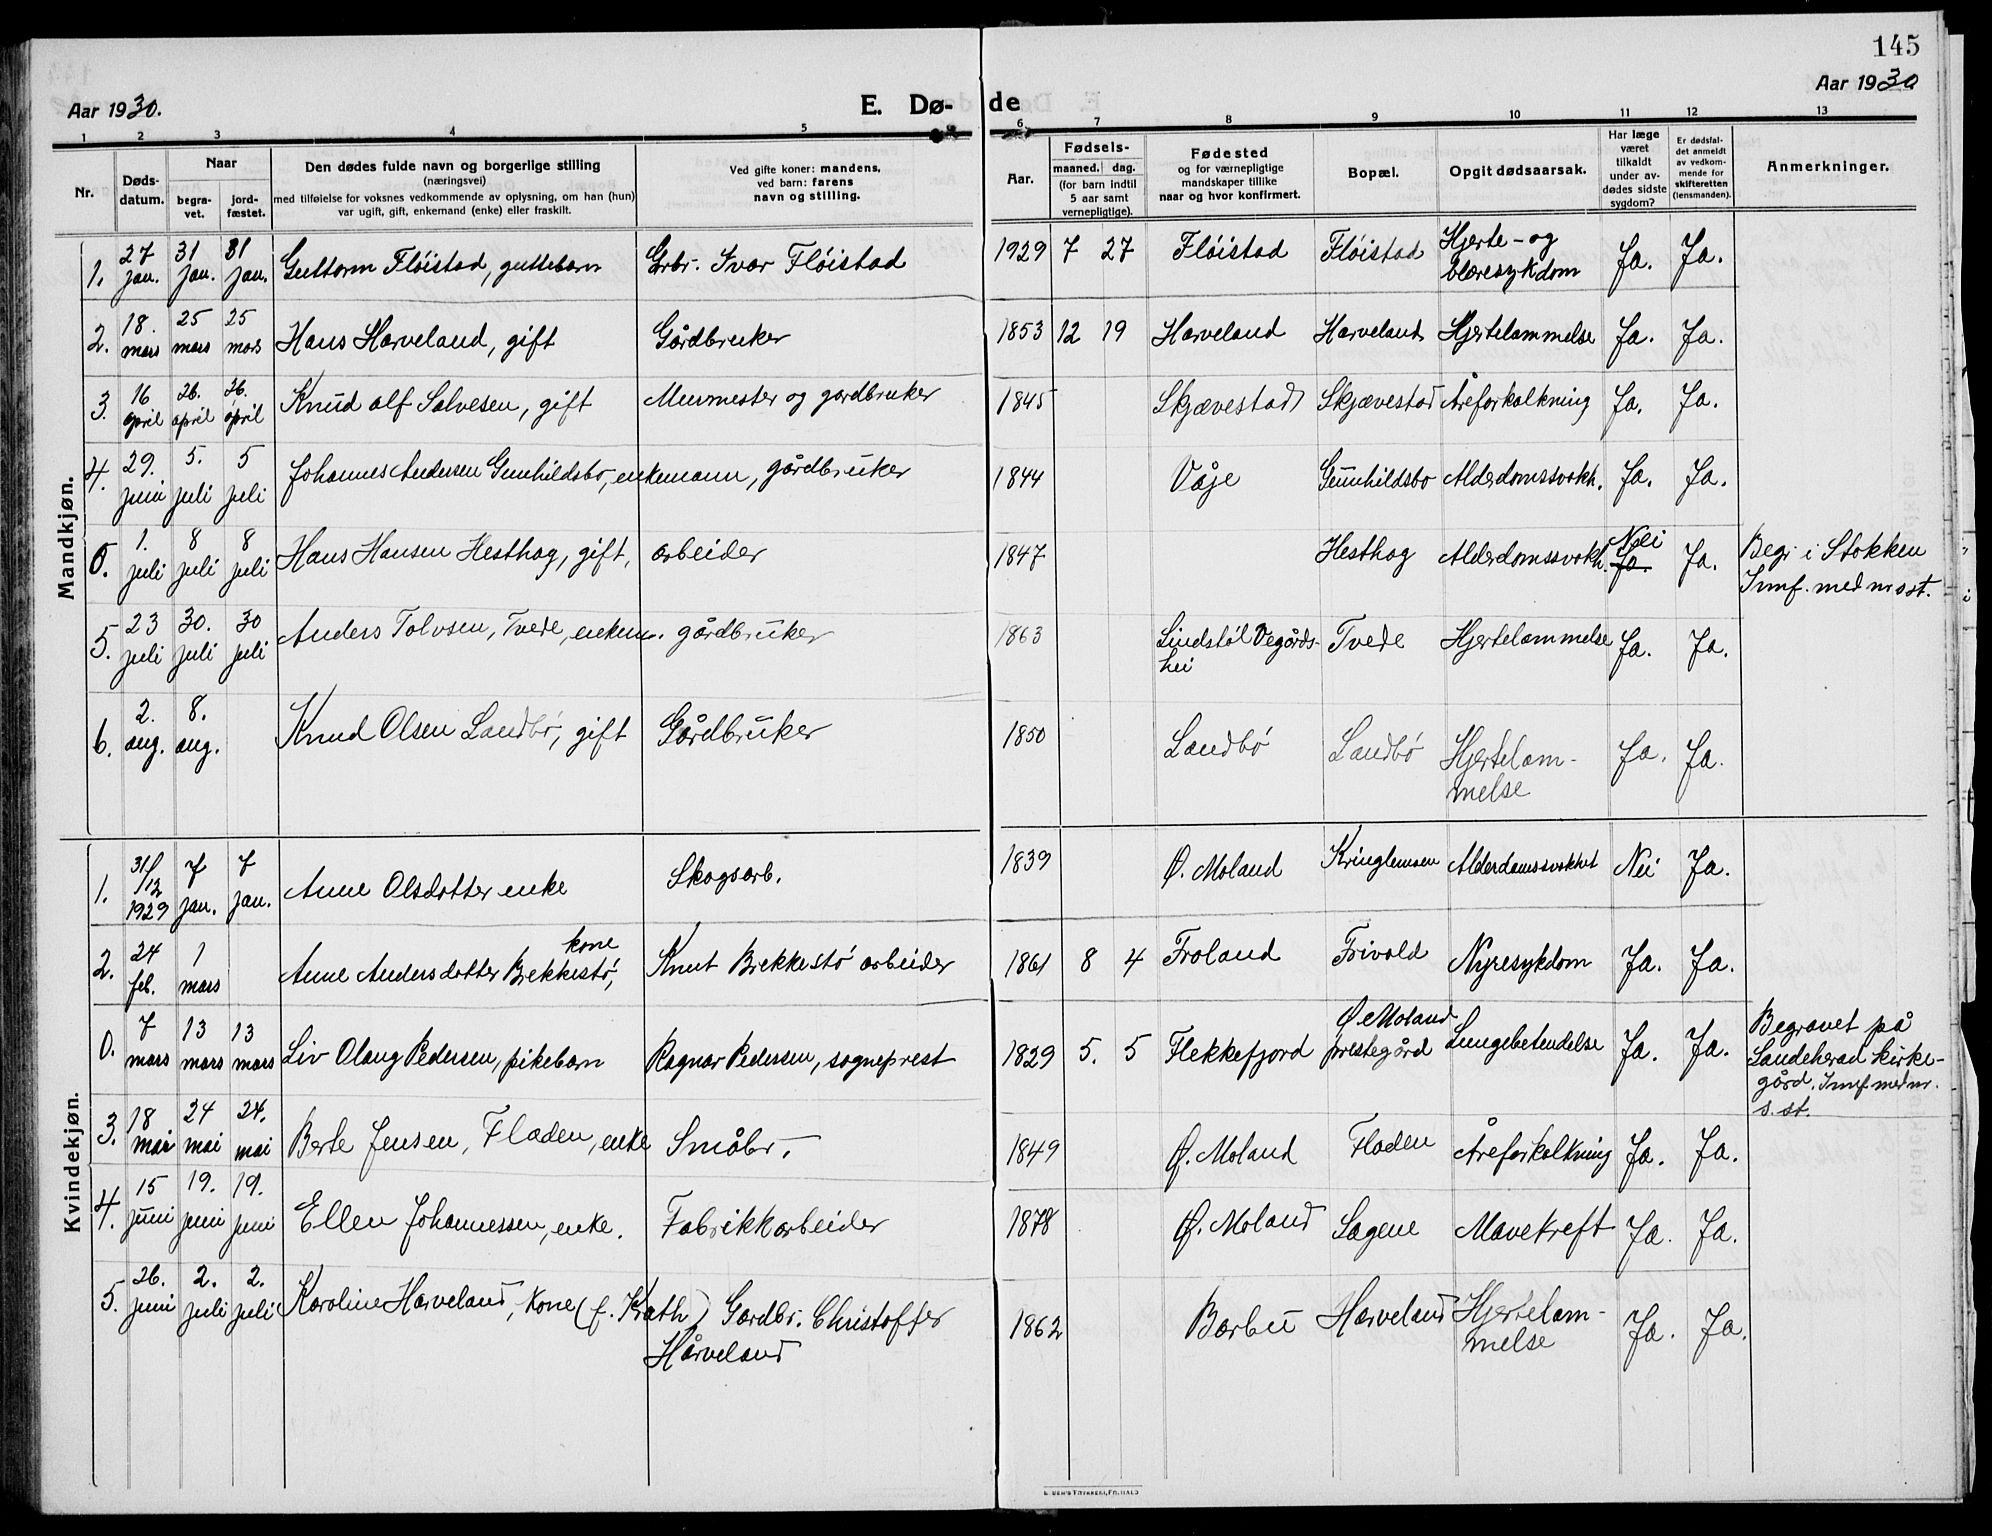 145
Aar 1930.
E. Dø- de
Aar 1930
1 2 3 4 5 6 7 8 9 10 11 12 13
Nr.
Døds-
datum.
Naar
begra-
vet.
jord-
fæstet.
Den dødes fulde navn og borgerlige stilling
(næringsvei)
med tilføielse for voksnes vedkommende av oplysning, om han (hun)
var ugift, gift, enkemand (enke) eller fraskilt.
Ved gifte koner: mandens,
ved barn: farens
navn og stilling.
Aar.
Fødsels-
maaned. dag.
(for barn indtil
5 aar samt
vernepligtige).
Fødested
og for værnepligtige
mandskaper tillike
naar og hvor konfirmert.
Bopæl.
Opgit dødsaarsak.
Har læge
været
tilkaldt
under av-
dødes sidste
sygdom?
Er dødsfal-
det anmeldt
av vedkom-
mende for
skifteretten
(lensmanden).
Anmerkninger.
Mandkjøn.
1. 27 jan. 31 jan. 31 jan. Guttorm Fløistad, guttebarn Grbr. Ivar Fløistad 1929 7 27 Fløistad Fløistad Hjerte- og blæresykdom Ja. Ja.
2. 18. mars 25 mars 25 mars Hans Harveland, gift Gårdbruker 1853 12 19 Harveland Harveland Hjertelammelse Ja. Ja.
3. 16 april 26. april 26. april Knud Alf Salvesen, gift Murmester og gardbruker 1845 Skjævestad Skjævestad Åreforkalkning Ja. Ja.
4. 29. juni 5. juli 5 juli Johannes Andersen Gunhildsbo, enkemann, gårdbruker 1844 Våje Gunhildsbo Alderdomssvakh. Ja. Ja.
0. 1. juli 8 juli 8 juli Hans Hansen Hesthag, gift, arbeider 1847 Hesthag Alderdomssvakh. Nei Ja. Ja. Begr. i Stokken
Innf. med nr. sst.
5. 23 juli 30. juli 30 juli Anders Tolvsen, Tvede, enkem. gårdbruker 1863 Lindstøl Vegårds-
hei Tvede Hjertelammelse Ja. Ja.
6. 2. aug. 8. aug. Knud Olsen Landbø, gift Gårdbruker 1850 Landbø Landbø Hjertelam-
melse Ja. Ja.
Kvindekjøn.
1. 31/12 1929 7 jan. 7 jan. Anne Olsdotter enke Skogsarb. 1839 Ø. Moland Kringlemoen Alderdomssvakhet Nei Ja.
2. 24 feb. 1 mars Anne Andersdotter Brekkestø, kone Knut Brekkestø arbeider 1861 8 4 Froland Frivold Nyresykdom Ja. Ja.
0. 7 mars 13 mars 13 mars Liv Olaug Pedersen, pikebarn Ragnar Pedersen, sogneprest 1829 5. 5 Flekkefjord Ø Moland
prestegård Lungebetendelse Ja. Ja. Begravet på
Sandeherad kirke-
gård. Innf. med nr.
s. st.
3. 18 mai 24 mai 24. mai Berte Jensen, Fladen, enke Småbr. 1849 Ø. Moland Fladen Åreforkalkning Ja. Ja.
4. 15 juni 19. juni 19. juni Ellen Johannessen, enke. Fabrikkarbeider 1878 Ø. Moland Sagene Mavekreft Ja. Ja.
5. 26. juni 2. juli 2. juli Karoline Harveland, kone (f. Krath) Gardbr. Christoffer
Hårveland 1862 Barbu Harveland Hjertelam-
melse Ja. Ja.